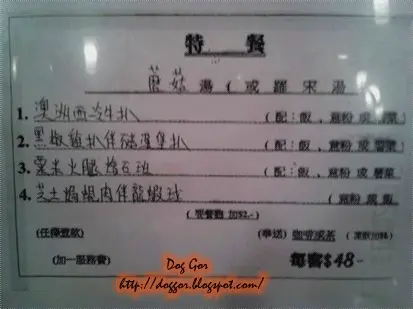 特餐
蘑菇湯(或羅宋湯
1. 澳洲西冷牛扒 (配:飯,意粉或
2. 黑椒雞扒伴豬扒 (配:飯,意粉或薯菜)
3. 粟米火腿燴石班 (配:飯,意粉或薯菜)
4. 芝士焗蜆肉伴龍蝦球 意粉或飯
(凍餐飲 加$2.-)
(任擇壹款) (奉送) 咖啡或茶 (凍飲加料)
(加一服務費) 每客$48-
Dog Gor
http://doggor.blogspot.com/